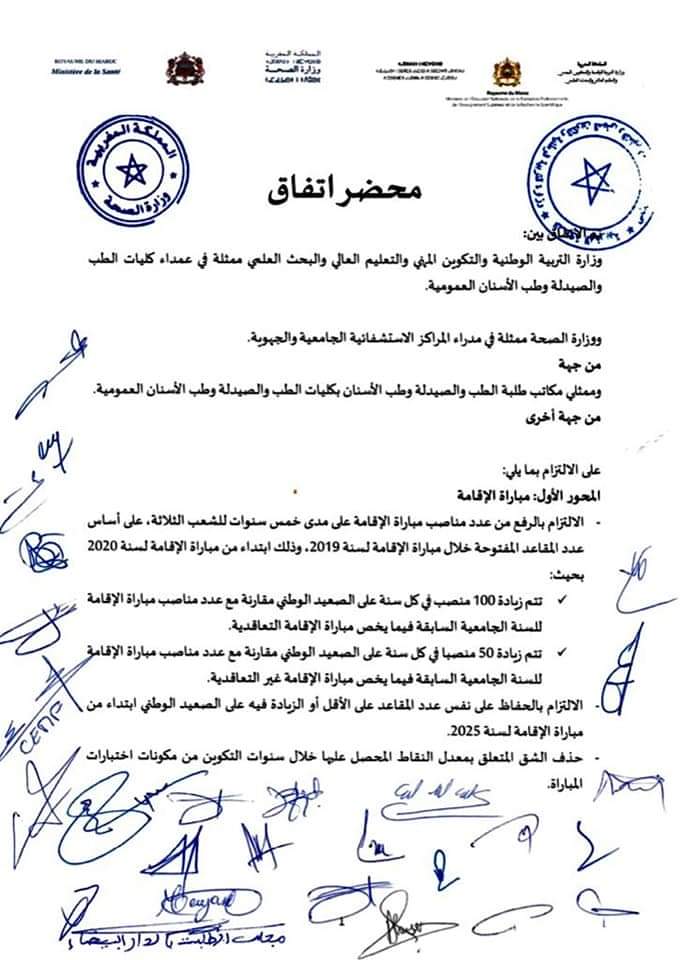 ROYAUME DU MAROC
Ministère de la Santé
المملكة المغربية
وزارة الصحة
المملكة المغربية
Royaume du Maroc
المملكة المغربية
وزارة الصحة
محضر اتفاق
تم الاتفاق بين:
وزارة التربية الوطنية والتكوين المهني والتعليم العالي والبحث العلمي ممثلة في عمداء كليات الطب
والصيدلة وطب الأسنان العمومية.
ووزارة الصحة ممثلة في مدراء المراكز الاستشفائية الجامعية والجهوية.
من جهة
وممثلي مكاتب طلبة الطب والصيدلة وطب الأسنان بكليات الطب والصيدلة وطب الأسنان العمومية.
من جهة أخرى
على الالتزام بما يلي:
المحور الأول: مباراة الإقامة
- الالتزام بالرفع من عدد مناصب مباراة الإقامة على مدى خمس سنوات للشعب الثلاثة، على أساس
عدد المقاعد المفتوحة خلال مباراة الإقامة لسنة 2019، وذلك ابتداء من مباراة الإقامة لسنة 2020
بحيث:
✓ تتم زيادة 100 منصب في كل سنة على الصعيد الوطني مقارنة مع عدد مناصب مباراة الإقامة
للسنة الجامعية السابقة فيما يخص مباراة الإقامة التعاقدية.
✓ تتم زيادة 50 منصبا في كل سنة على الصعيد الوطني مقارنة مع عدد مناصب مباراة الإقامة
للسنة الجامعية السابقة فيما يخص مباراة الإقامة غير التعاقدية.
- الالتزام بالحفاظ على نفس عدد المقاعد على الأقل أو الزيادة فيه على الصعيد الوطني ابتداء من
مباراة الإقامة لسنة 2025.
- حذف الشق المتعلق بمعدل النقاط المحصل عليها خلال سنوات التكوين من مكونات اختبارات
المباراة.
1
مجلس الطلبة بالدار البيضاء